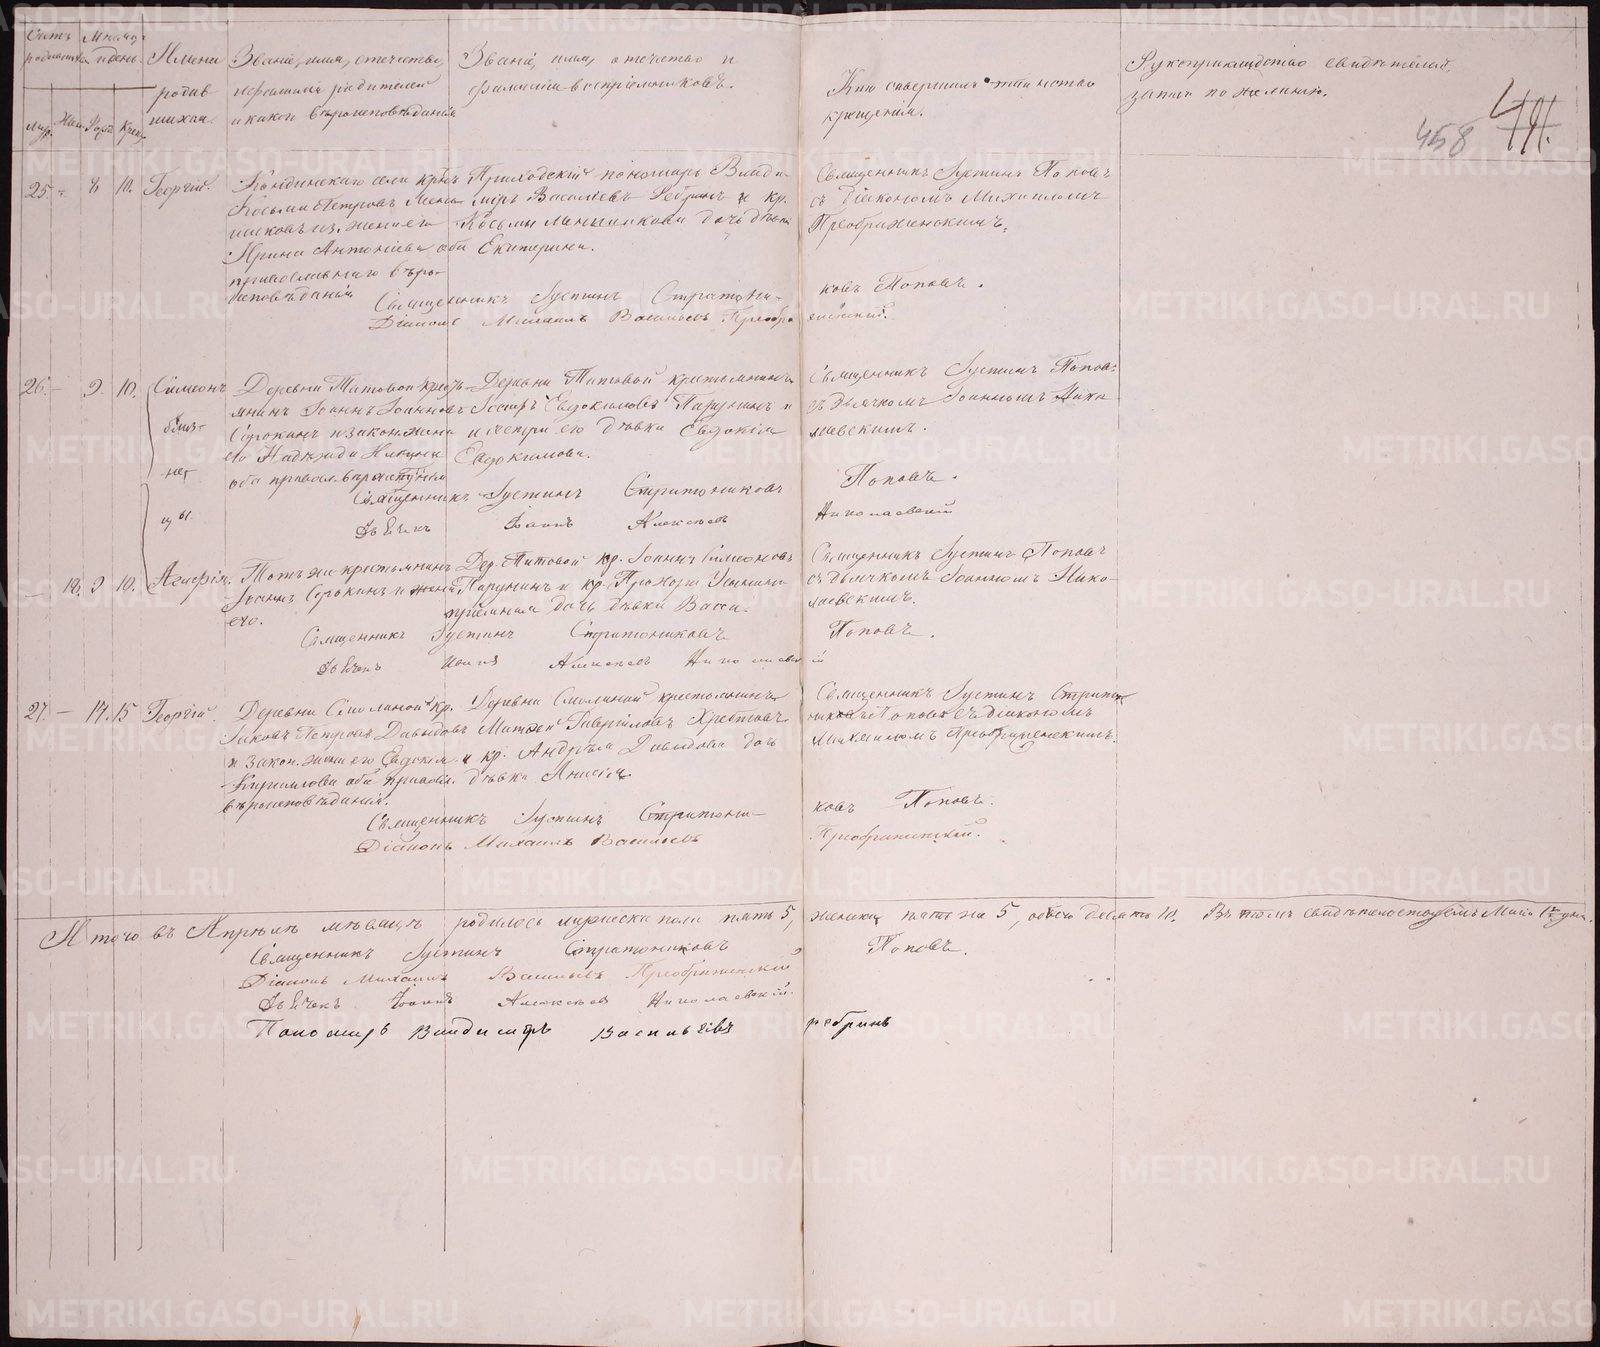 Счетъ родившихся
Мѣсяцъ и день
Имена родившихся
Званіе, имя, отчество, и фамилія родителей и какого вѣроисповѣданія
Званіе, имя, отчество и фамилія воспріемниковъ.
Кто совершалъ таинство крещенія.
Рукоприкладство свидѣтелей записи по желанію.
муж. Жен. Рожд. Крещ.
458
25 - 8 10. Георгій.
села крес.
Косьма Петровъ
жена его
Ирина Антоніева оба
православнаго вѣро-
исповѣданія
Приходскій пономарь Влади-
міръ Васильевъ Ребринъ и кр.
Косьмы Меньшикова дочь дѣвка
Екатерина.
Священникъ Іустинъ Поповъ
съ діакономъ Михаиломъ
Преображенскимъ.
Священникъ Іустинъ Стратони-
ковъ Поповъ.
Діаконъ Михаилъ Васильевъ Преобра
женскій.
26. - 9. 10. Симеонъ
близ-
не-
цы.
Деревни Титовой крес-
янинъ Іоаннъ Іоанновъ
Сорокинъ и закон. жена
его Надежда
оба правосл.
Деревни Титовой крестьянинъ
Евдокимовъ Парунинъ и
сестра его дѣвка Евдокія
Евдокимова.
Священникъ Іустинъ Попов
съ дьячкомъ Іоанномъ Нико
лаевскимъ.
Священникъ Іустинъ Стратониковъ
Поповъ.
Дьячекъ Іоаннъ Алексѣевъ
Николаевскій
- 18. 9 10. Агафія.
Тотъ же крестьянинъ
Іоаннъ Сорокинъ и жена
его.
Дер. Титовой кр. Іоаннъ Симеоновъ
Парунинъ и кр. Прохора
пріемная дочь дѣвка Васса.
Священникъ Іустинъ Поповъ
съ дьячкомъ Іоанномъ Нико-
лаевскимъ.
Священникъ Іустинъ Стратониковъ
Поповъ.
Дьячекъ Іоаннъ Алексѣевъ Николаевскій
27. - 14. 15 Георгій.
Деревни Смолиной кр.
Іаковъ Петровъ Давыдовъ
и закон. жена его Евдокія
Кирилова оба правосл.
вѣроисповѣданія.
Деревни Смолиной крестьянинъ
Матвей Гавріловъ
и кр. Андрѣя Давыдова дочь
дѣвка Анисія.
Священникъ Іустинъ Стратон
никовъ Поповъ съ діакономъ
Михаиломъ Преображенскимъ.
Священникъ Іустинъ Стратони-
ковъ Поповъ.
Діаконъ Михаилъ Васильевъ
Преображенскій.
Итого въ Апрѣлѣ мѣсяцѣ родилось мужеска пола пять 5, женска пять же 5, обоего десять 10. Въ томъ свидѣтельствуемъ Маія 1го дня.
Священникъ Іустинъ Стратониковъ Поповъ.
Діаконъ Михаилъ Васильевъ Преображенскій
Дьячекъ Іоаннъ Алексѣевъ Николаевскій.
Пономарь Владимиръ Васильевъ ребринъ
METRIKI.GASO-URAL.RU